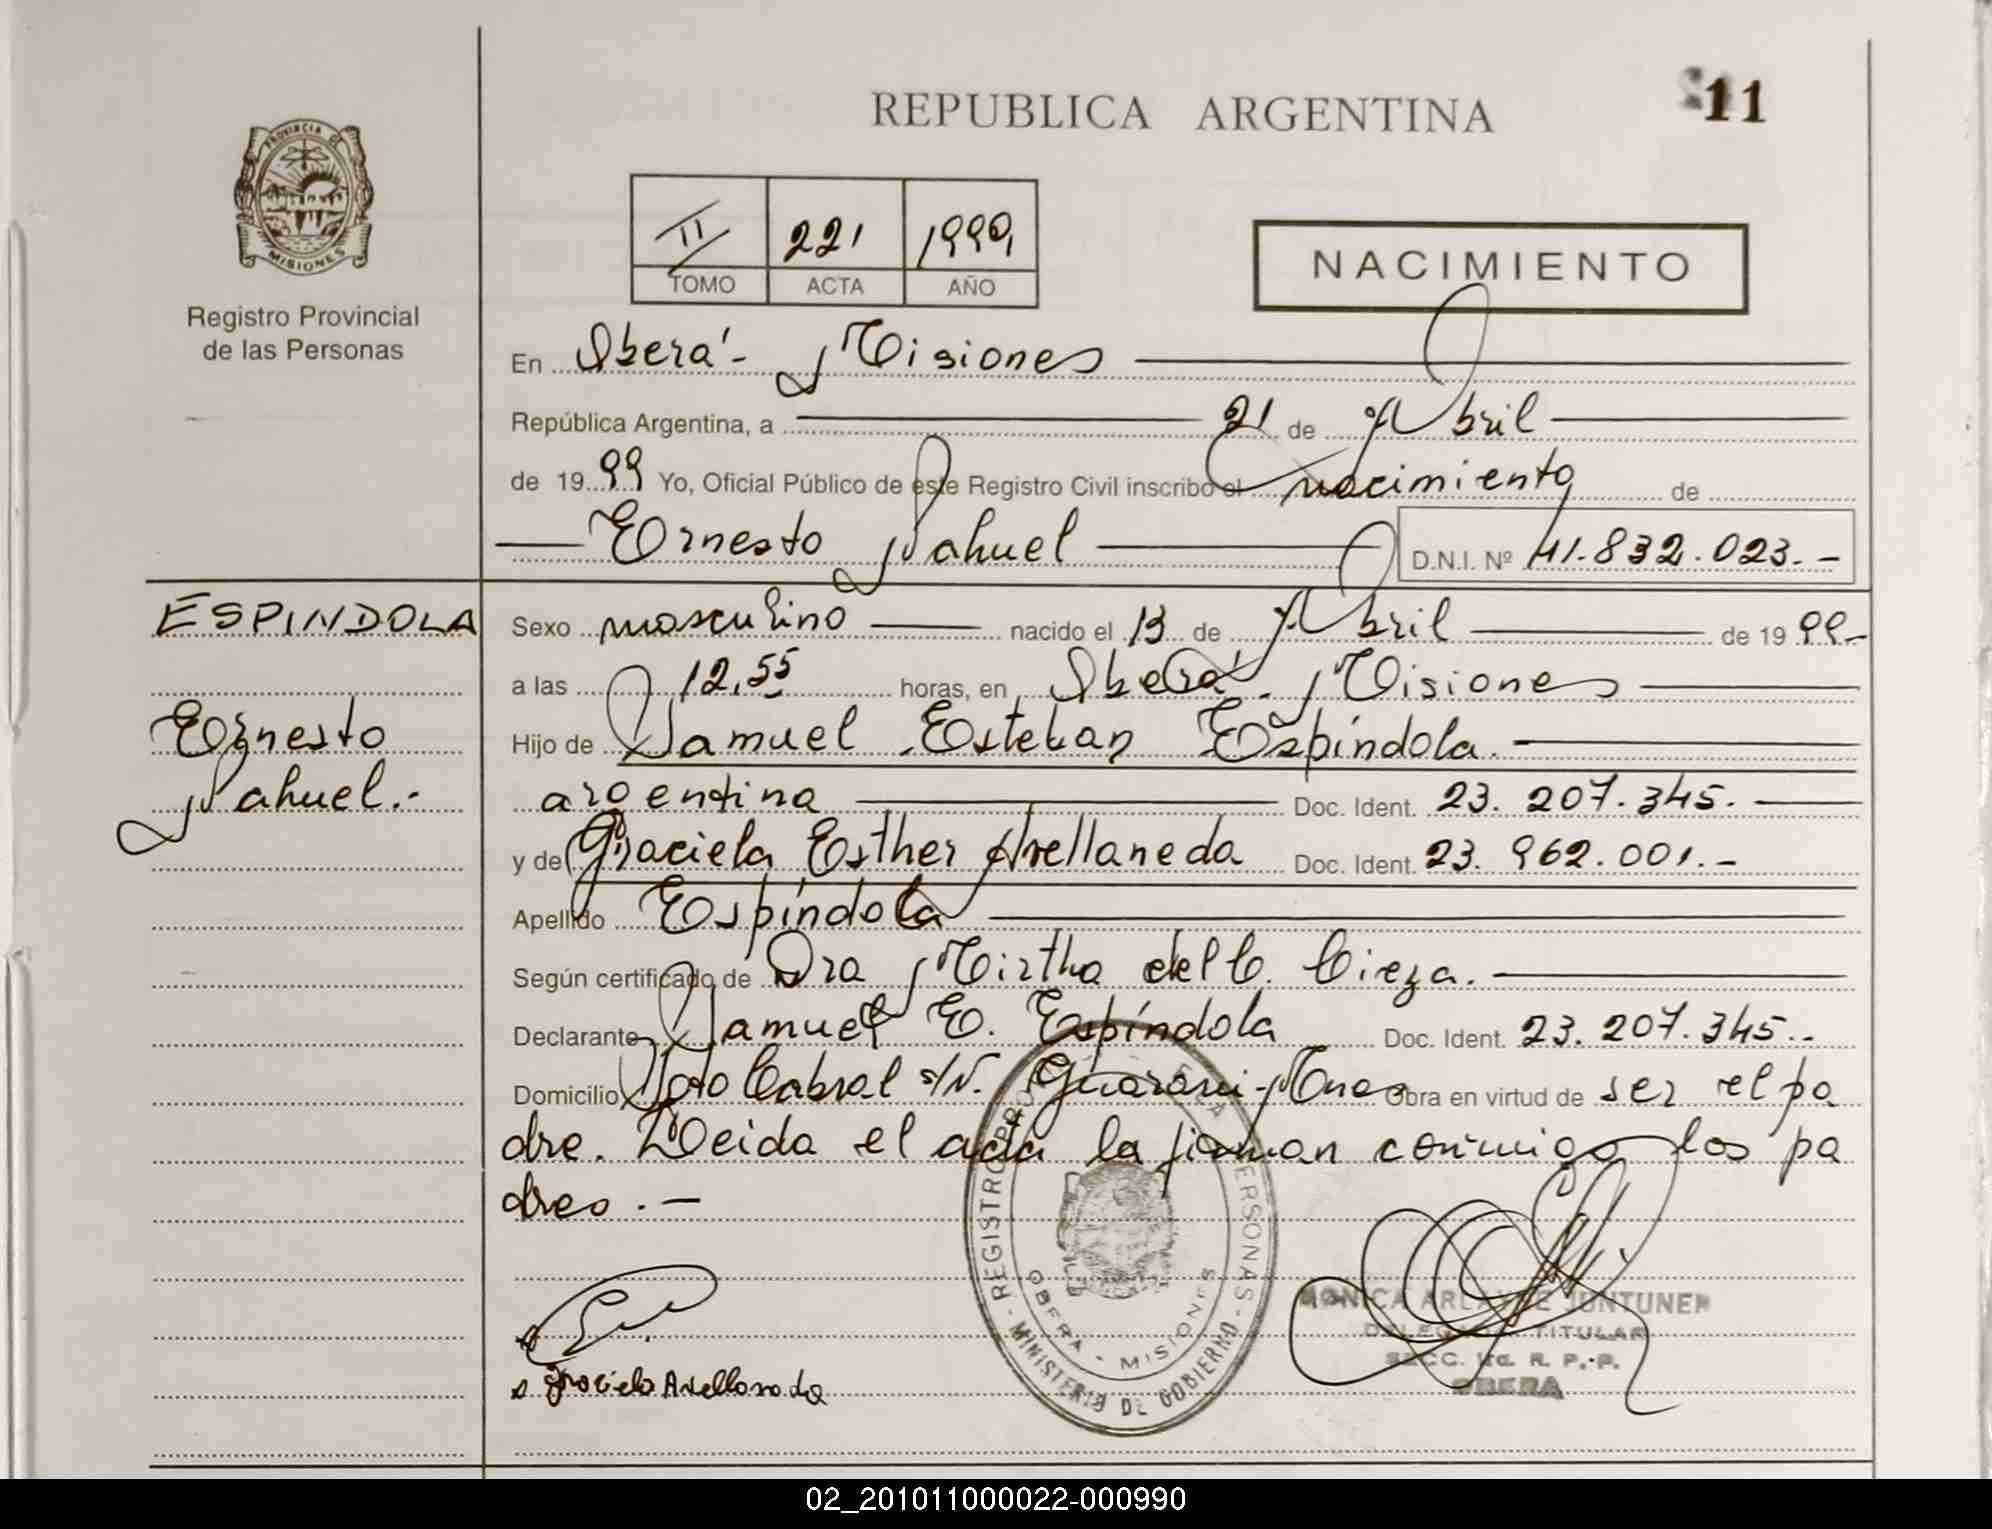 REPUBLICA ARGENTINA
11
PROVINCIA DE
MISIONES
Registro Provincial
de las Personas
II 221 1999
TOMO ACTA AÑO
NACIMIENTO
En Oberá - Misiones
República Argentina, a 21 de Abril
de 1999 Yo, Oficial Público de este Registro Civil inscribo el nacimiento de
Ernesto Nahuel D.N.I. Nº 41.832.023.-
ESPINDOLA
Ernesto
Nahuel.-
Sexo masculino nacido el 13 de Abril de 1999.-
a las 12,55 horas, en Oberá - Misiones
Hijo de Samuel Esteban Espíndola.-
argentina Doc. Ident. 23.207.345.-
y de Graciela Esther Avellaneda Doc. Ident. 23.962.001.-
Apellido Espíndola
Según certificado de Dra Mirtha del C. Cieza.
Declarante Samuel E. Espíndola Doc. Ident. 23.207.345.-
Domicilio Sgto Cabral s/N. Guaraní - Mnes Obra en virtud de ser el pa
dre. Leida el acta la firman conmigo los pa
dres.-
Graciela Avellaneda
REGISTRO PERSONAS
OBERA - MISIONES
MINISTERIO DE GOBIERNO
MONICA JUNTUNEN
TITULAR
SECC. R. P. P.
OBERA
02_201011000022-000990